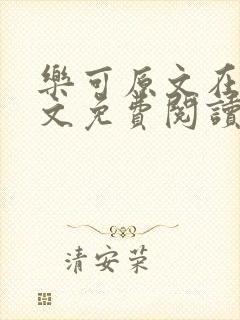 樂可原文在
文免費閱讀
清安荣